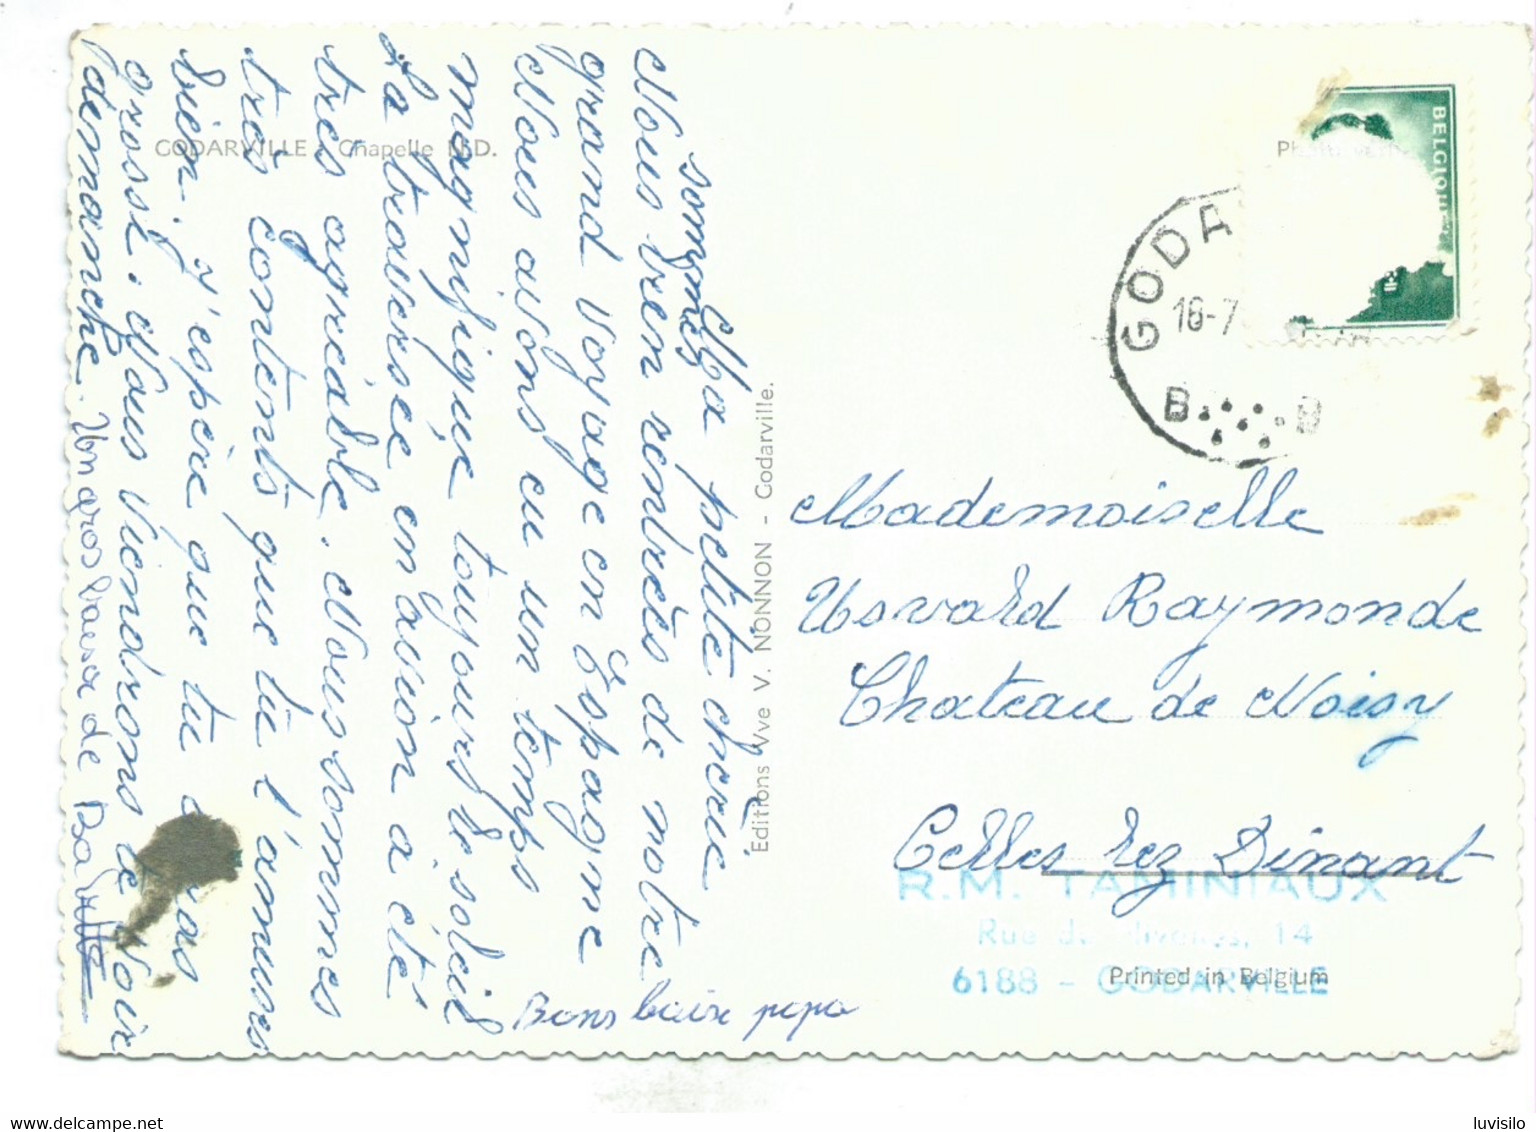 GODARVILLE : Chapelle N.D.
Ma petite chérie
Nous sommes
bien rentrées de notre
grand voyage en Espagne
Nous avons eu un temps
magnifique toujours le soleil
La traversée en avion a été
très agréable. Nous sommes
très contents que tu t'amuses
bien. J'espère que tu
grossi. Nous viendrons te voir
demanche. Un gros baiser de
Bons baise papa
Editions Vve V. NONNON - Godarville.
BELGIQUE
GODA
16-7
B B
Mademoiselle
Usvald Raymonde
Chateau de Noisy
Celles lez Dinant
R.M. TAMINIAUX
Rue du 14
6188 - GODARVILLE
Printed in Belgium
luvisilo